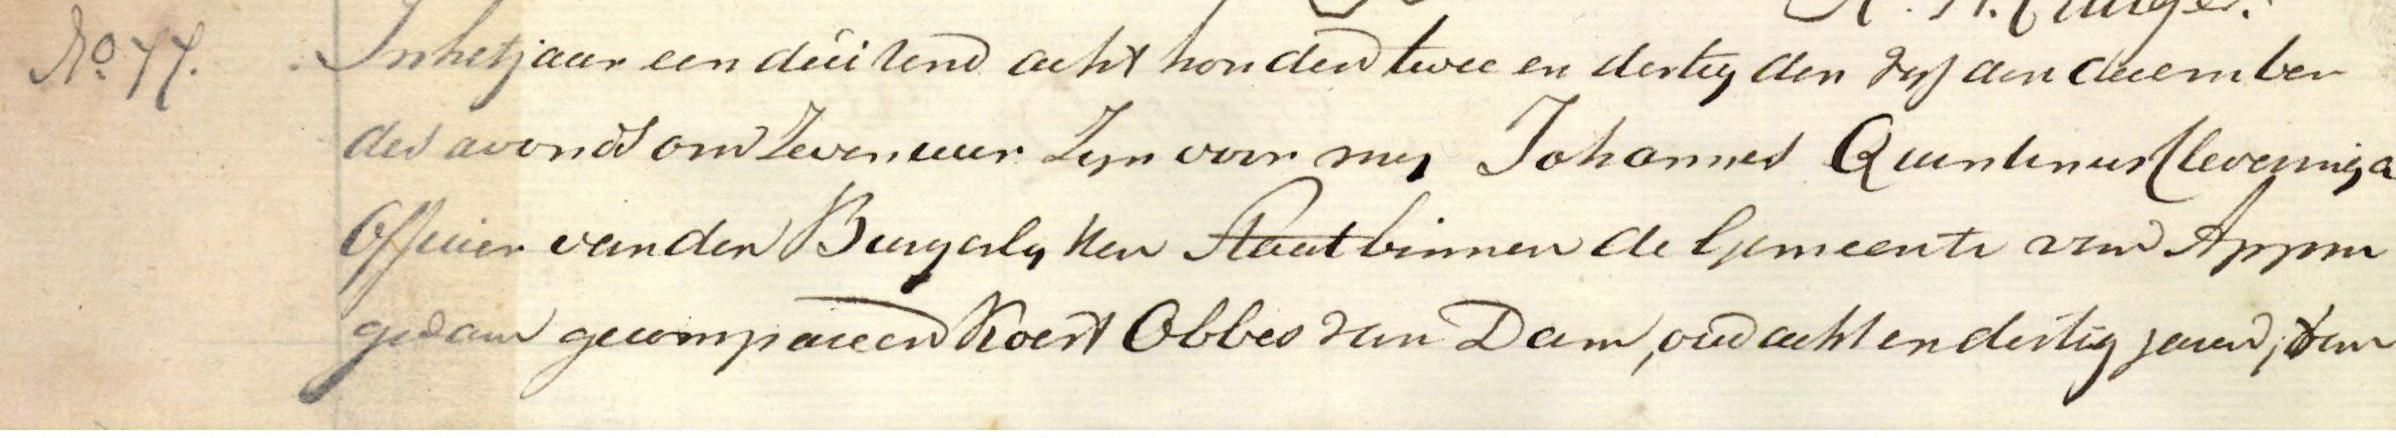 No. 77. In het jaar een duizend acht honderd twee en dertig den zesden december
des avonds om Zeven uur Zyn voor my Johannes Quintinus Clevering a
Officier van den Burgerlyken Staat binnen de Gemeente van Appin
gedam gecompareerd Koert Obbes van Dam, oud acht en dertig jaren,